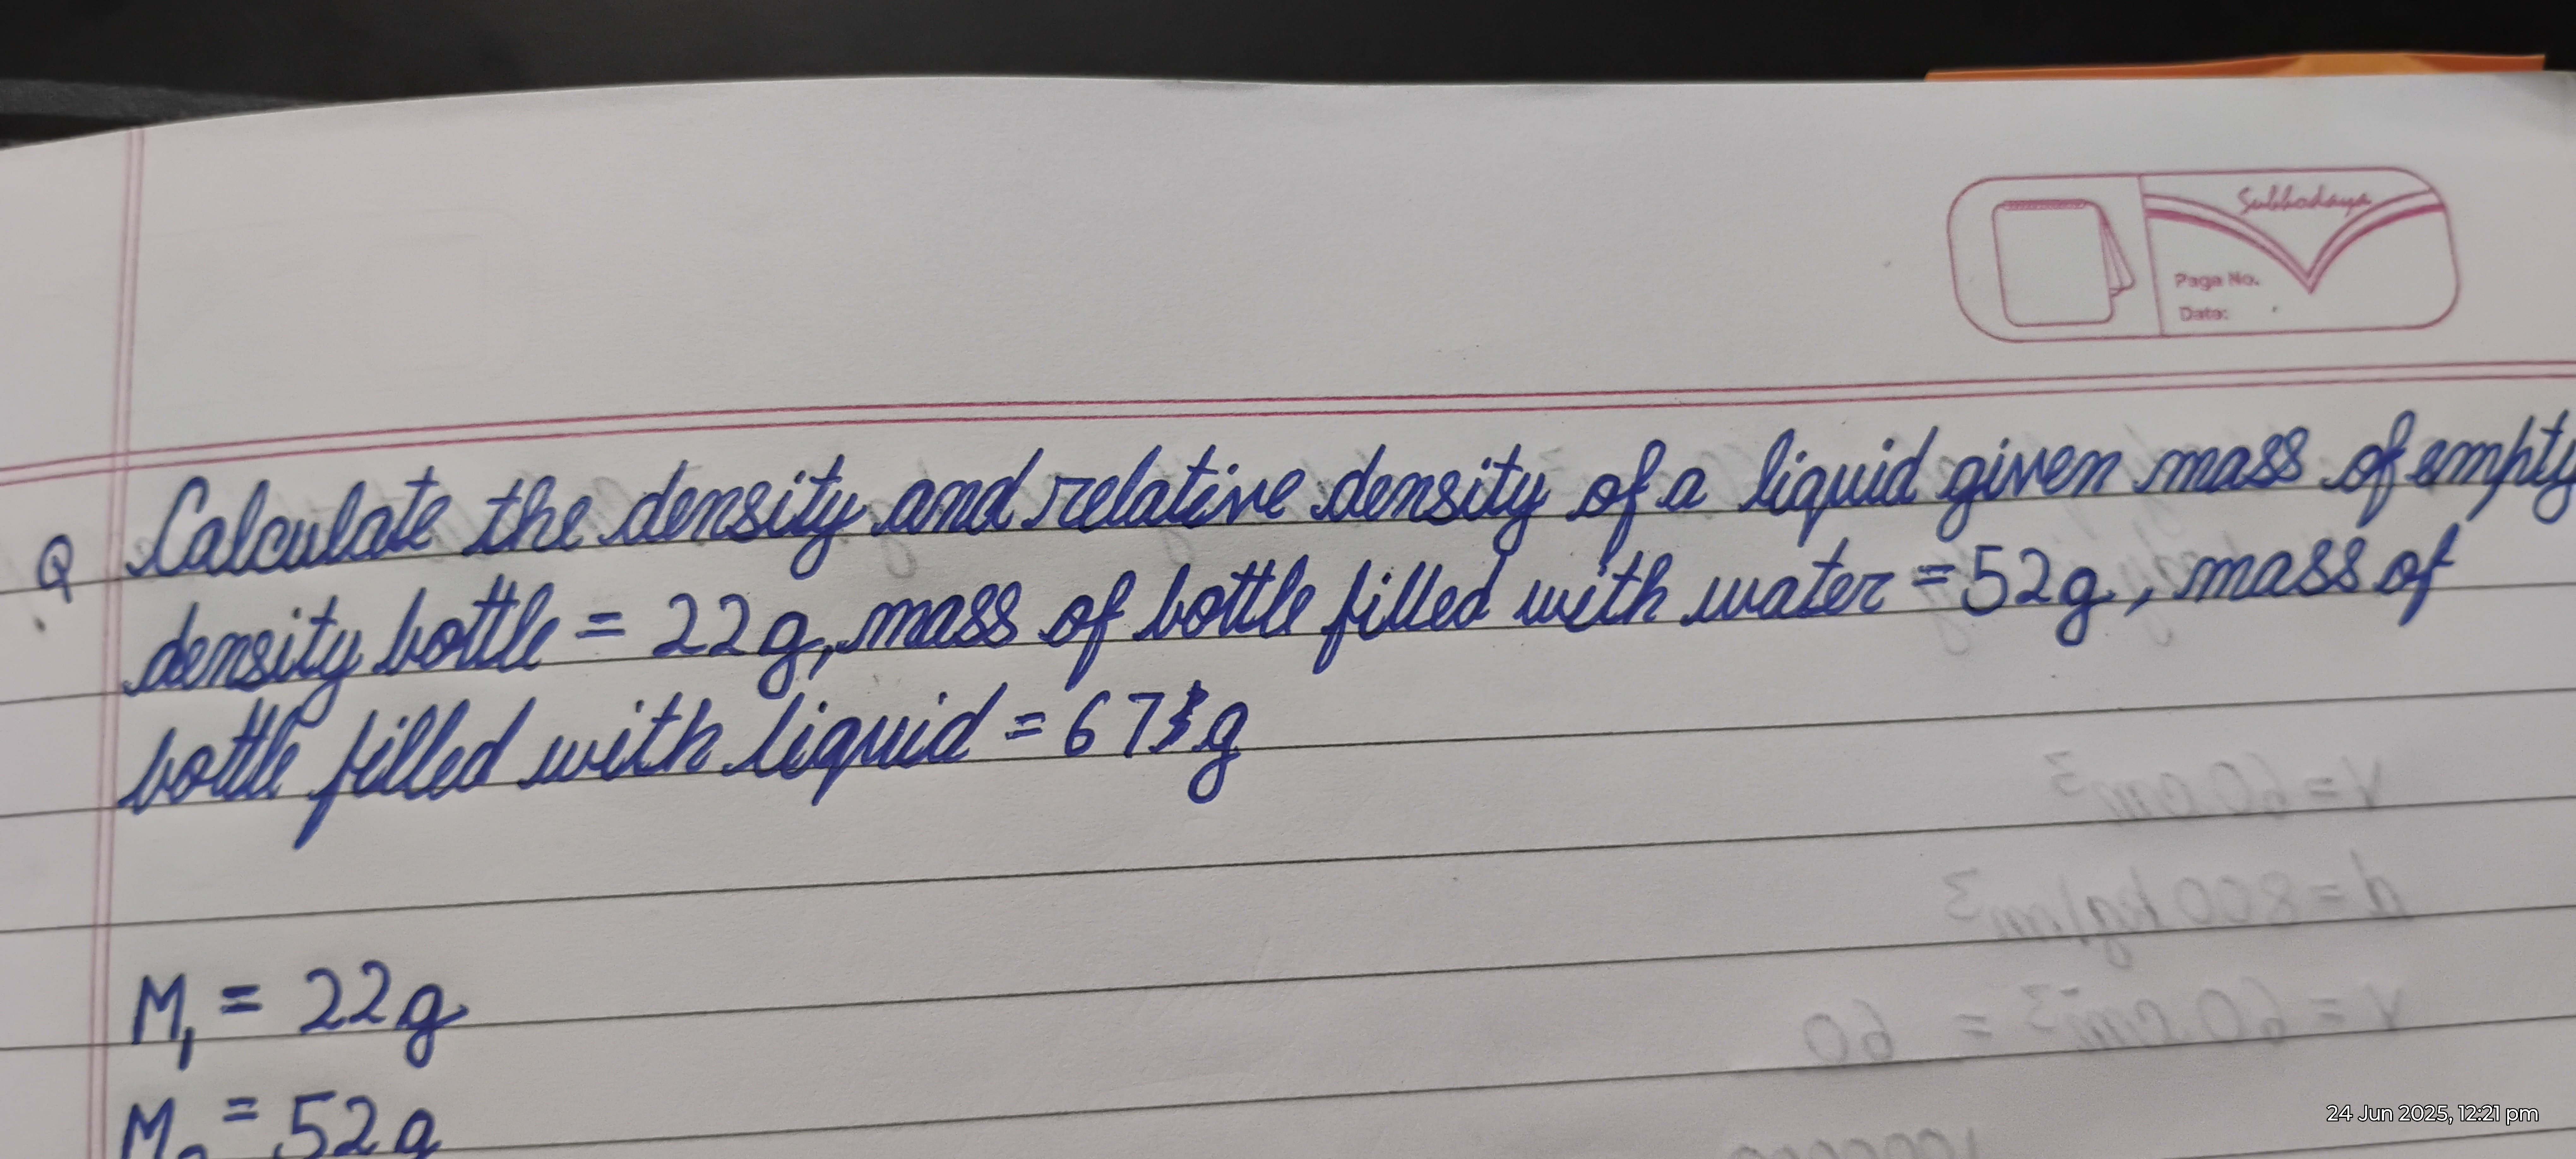 Subhodaya
Page No.
Date:
Q. Calculate the density and relative density of a liquid given mass of empty
density bottle = 22g, mass of bottle filled with water = 52g, mass of
bottle filled with liquid = 67 g
M₁ = 22g
M₂ = 52g
V = 60 cm³
d = 800 kg/cm³
V = 60 cm³ = 60
24 Jun 2025, 12:21 pm